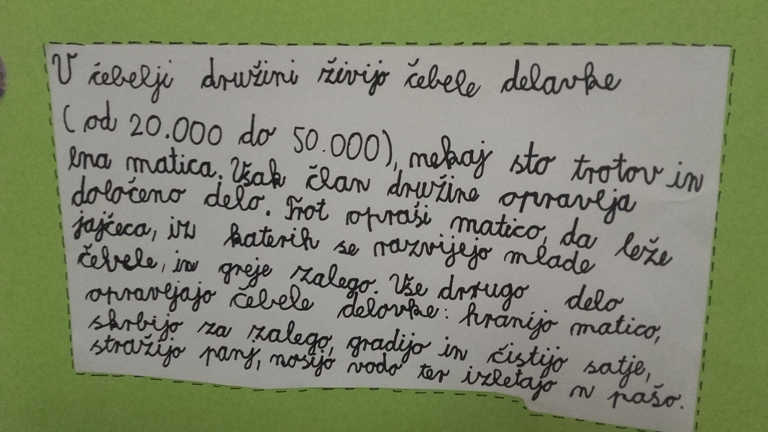 V čebelji družini živijo čebele delavke
(od 20.000 do 50.000), nekaj sto trotov in
ena matica. Vsak član družine opravlja
določeno delo. Trot opraši matico, da leže
jajčeca, iz katerih se razvijejo mlade
čebele, in greje zalego. Vse drrugo delo
opravljajo čebele delovke: hranijo matico,
skrbijo za zalego, gradijo in čistijo satje,
stražijo panj, nosijo vodo ter izletajo n pašo.